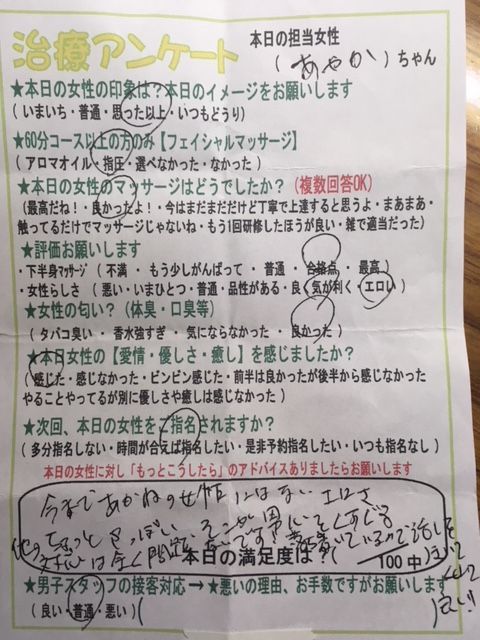 治療アンケート
本日の担当女性
(あやか)ちゃん
★本日の女性の印象は?本日のイメージをお願いします
(いまいち・普通・思った以上・いつもどうり)
★60分コース以上の方のみ【フェイシャルマッサージ】
(アロマオイル・指圧・選べなかった・なかった)
★本日の女性のマッサージはどうでしたか?(複数回答OK)
(最高だね!・良かったよ!・今はまだまだだけど丁寧で上達すると思うよ・まあまあ・
触ってるだけでマッサージじゃないね・もう1回研修したほうが良い・雑で適当だった)
★評価お願いします
・下半身マッサージ(不満・もう少しがんばって・普通・合格点・最高)
・女性らしさ(悪い・いまひとつ・普通・品性がある・良く気が利く・エロい)
★女性の匂い?(体臭・口臭等)
(タバコ臭い・香水強すぎ・気にならなかった・良かった)
★本日女性の【愛情・優しさ・癒し】を感じましたか?
(感じた・感じなかった・ビンビン感じた・前半は良かったが後半から感じなかった
やることやってるが別に優しさや癒しは感じなかった)
★次回、本日の女性をご指名されますか?
(多分指名しない・時間が合えば指名したい・是非予約指名したい・いつも指名なし)
本日の女性に対し「もっとこうしたら」のアドバイスありましたらお願いします
今まであかねの女性にはない エロさ
他の
本日の満足度は?( /100中)
★男子スタッフの接客対応→★悪いの理由、お手数ですがお願いします
(良い・普通・悪い)( )
良い!!